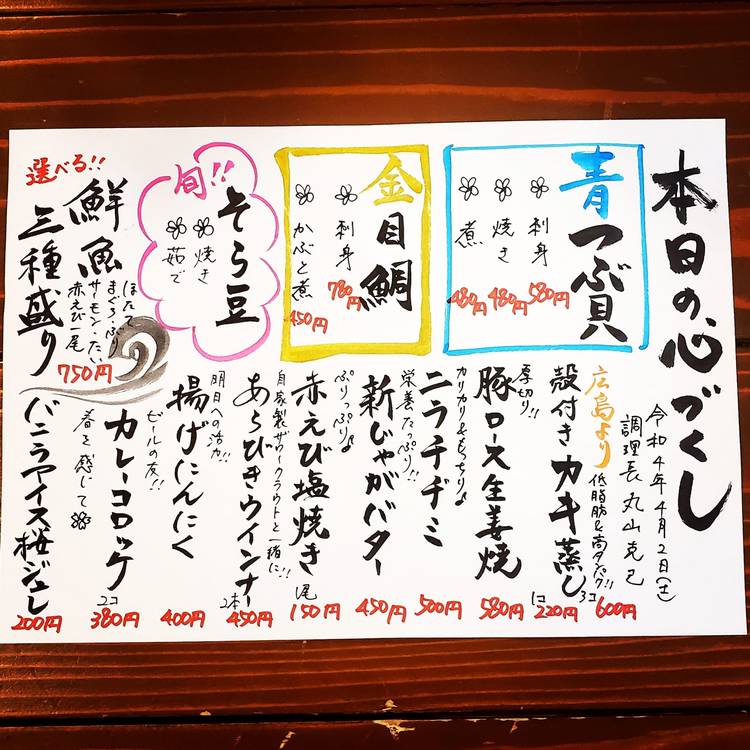 本日の心づくし
令和4年4月2日(土)
調理長 丸山克己
青つぶ貝
刺身 580円
焼き 480円
煮 480円
金目鯛
刺身 780円
かぶと煮 450円
旬!!
そら豆
焼き
茹で
選べる!!
鮮魚
三種盛り
ほたて
まぐろ・ぶり
サーモン・たい
赤えび一尾
750円
広島より
低脂肪&高タンパク!!
殻付きカキ蒸し
3コ 600円
1コ 220円
厚切り!!
豚ロース生姜焼
580円
カリカリ&もっちり♪
ニラチヂミ
500円
栄養たっぷり!!
新じゃがバター
450円
ぷりっぷり♪
赤えび塩焼き
1尾 150円
自家製ザワークラウトと一緒に!!
あらびきウインナー
2本 450円
明日への活力!!
揚げにんにく
400円
ビールの友!!
カレーコロッケ
2コ 380円
春を感じて
バニラアイス桜ジュレ
200円